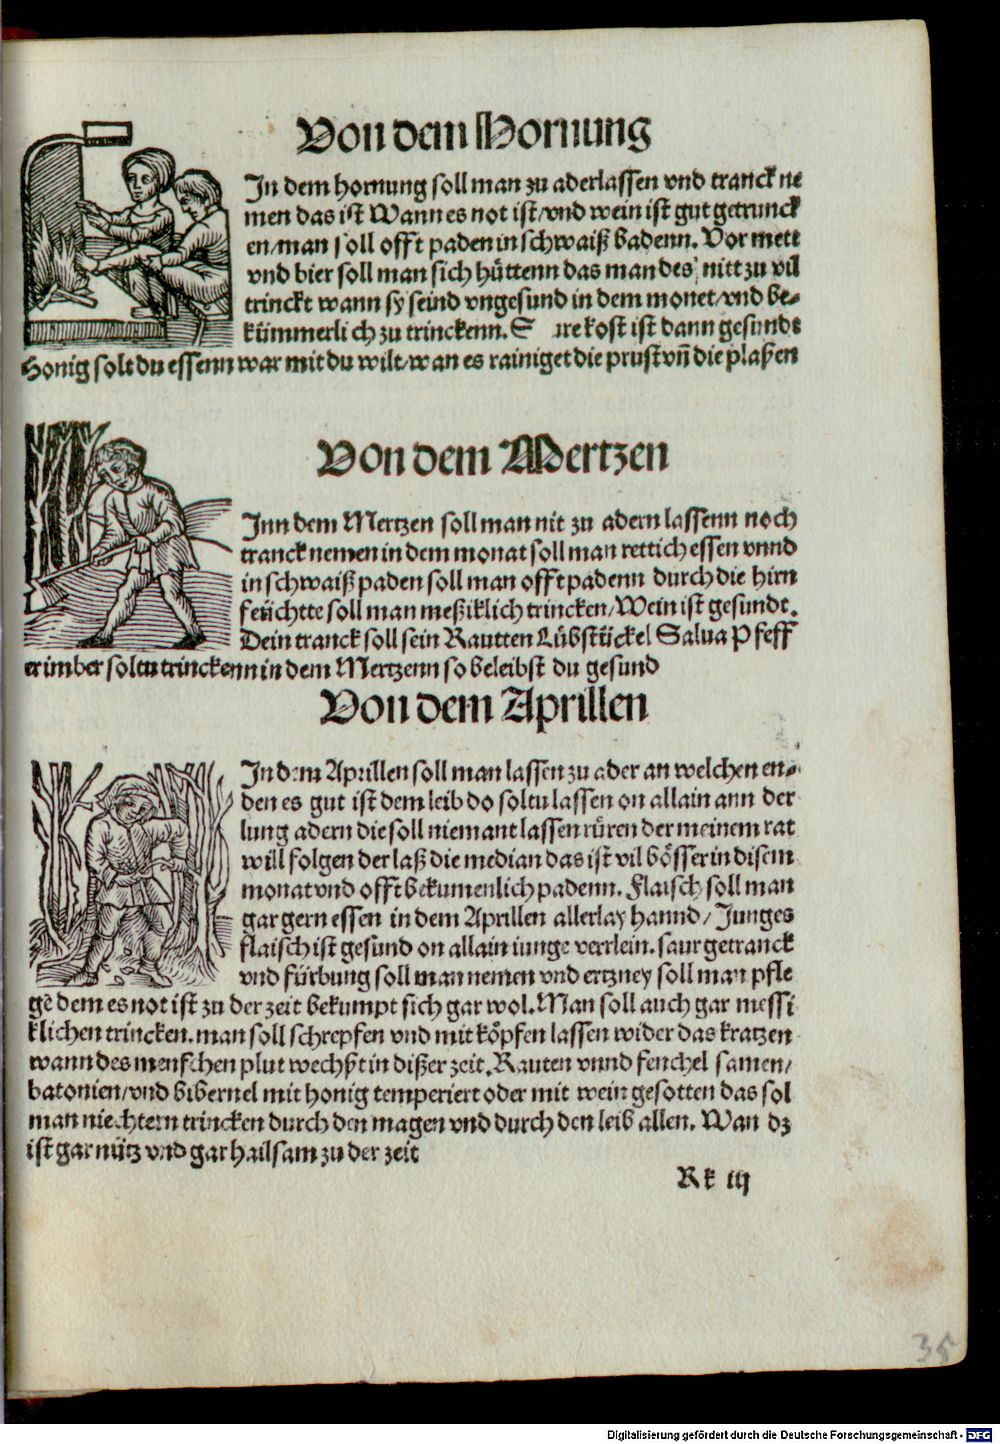 Von dem Hornung
In dem hornung soll man zu aderlassen vnd tranck ne
men das ist Wann es not ist/vnd wein ist gut getrunck
en/man soll offt paden in schwaiß badenn. Vor mett
vnd bier soll man sich hüttenn das man des nitt zu vil
trinckt wann sy seind vngesund in dem monet/vnd be-
kümmerli ch zu trinckenn. S  ure kost ist dann gesundt
Honig solt du essenn war mit du wilt/wan es rainiget die prust vn̄ die plaßen
Von dem Mertzen
Inn dem Mertzen soll man nit zu adern lassenn noch
tranck nemen in dem monat soll man rettich essen vnnd
in schwaiß paden soll man offt padenn durch die hirn
feüchtte soll man meßiklich trincken/Wein ist gesundt.
Dein tranck soll sein Rautten Lübstückel Salua Pfeff
er imber soltu trinckenn in dem Mertzenn so beleibst du gesund
Von dem Aprillen
In dem Aprillen soll man lassen zu ader an welchen en-
den es gut ist dem leib do soltu lassen on allain ann der
lung adern die soll niemant lassen rüren der meinem rat
will folgen der laß die median das ist vil bösser in disem
monat vnd offt bekumenlich padenn. Flaisch soll man
gar gern essen in dem Aprillen allerlay hannd/Junges
flaisch ist gesund on allain iunge verrlein. saur getranck
vnd fürbung soll man nemen vnd ertzney soll man pfle
ge dem es not ist zu der zeit bekumpt sich gar wol. Man soll auch gar messi
klichen trincken. man soll schrepfen vnd mit köpfen lassen wider das kratzen
wann des menschen plut wechßt in dißer zeit. Rauten vnnd fenchel samen/
batonien/vnd bibernel mit honig temperiert oder mit wein gesotten das sol
man niechtern trincken durch den magen vnd durch den leib allen. Wan dz
ist gar nütz vnd gar hailsam zu der zeit
Rk iij
35
Digitalisierung gefördert durch die Deutsche Forschungsgemeinschaft - DFG